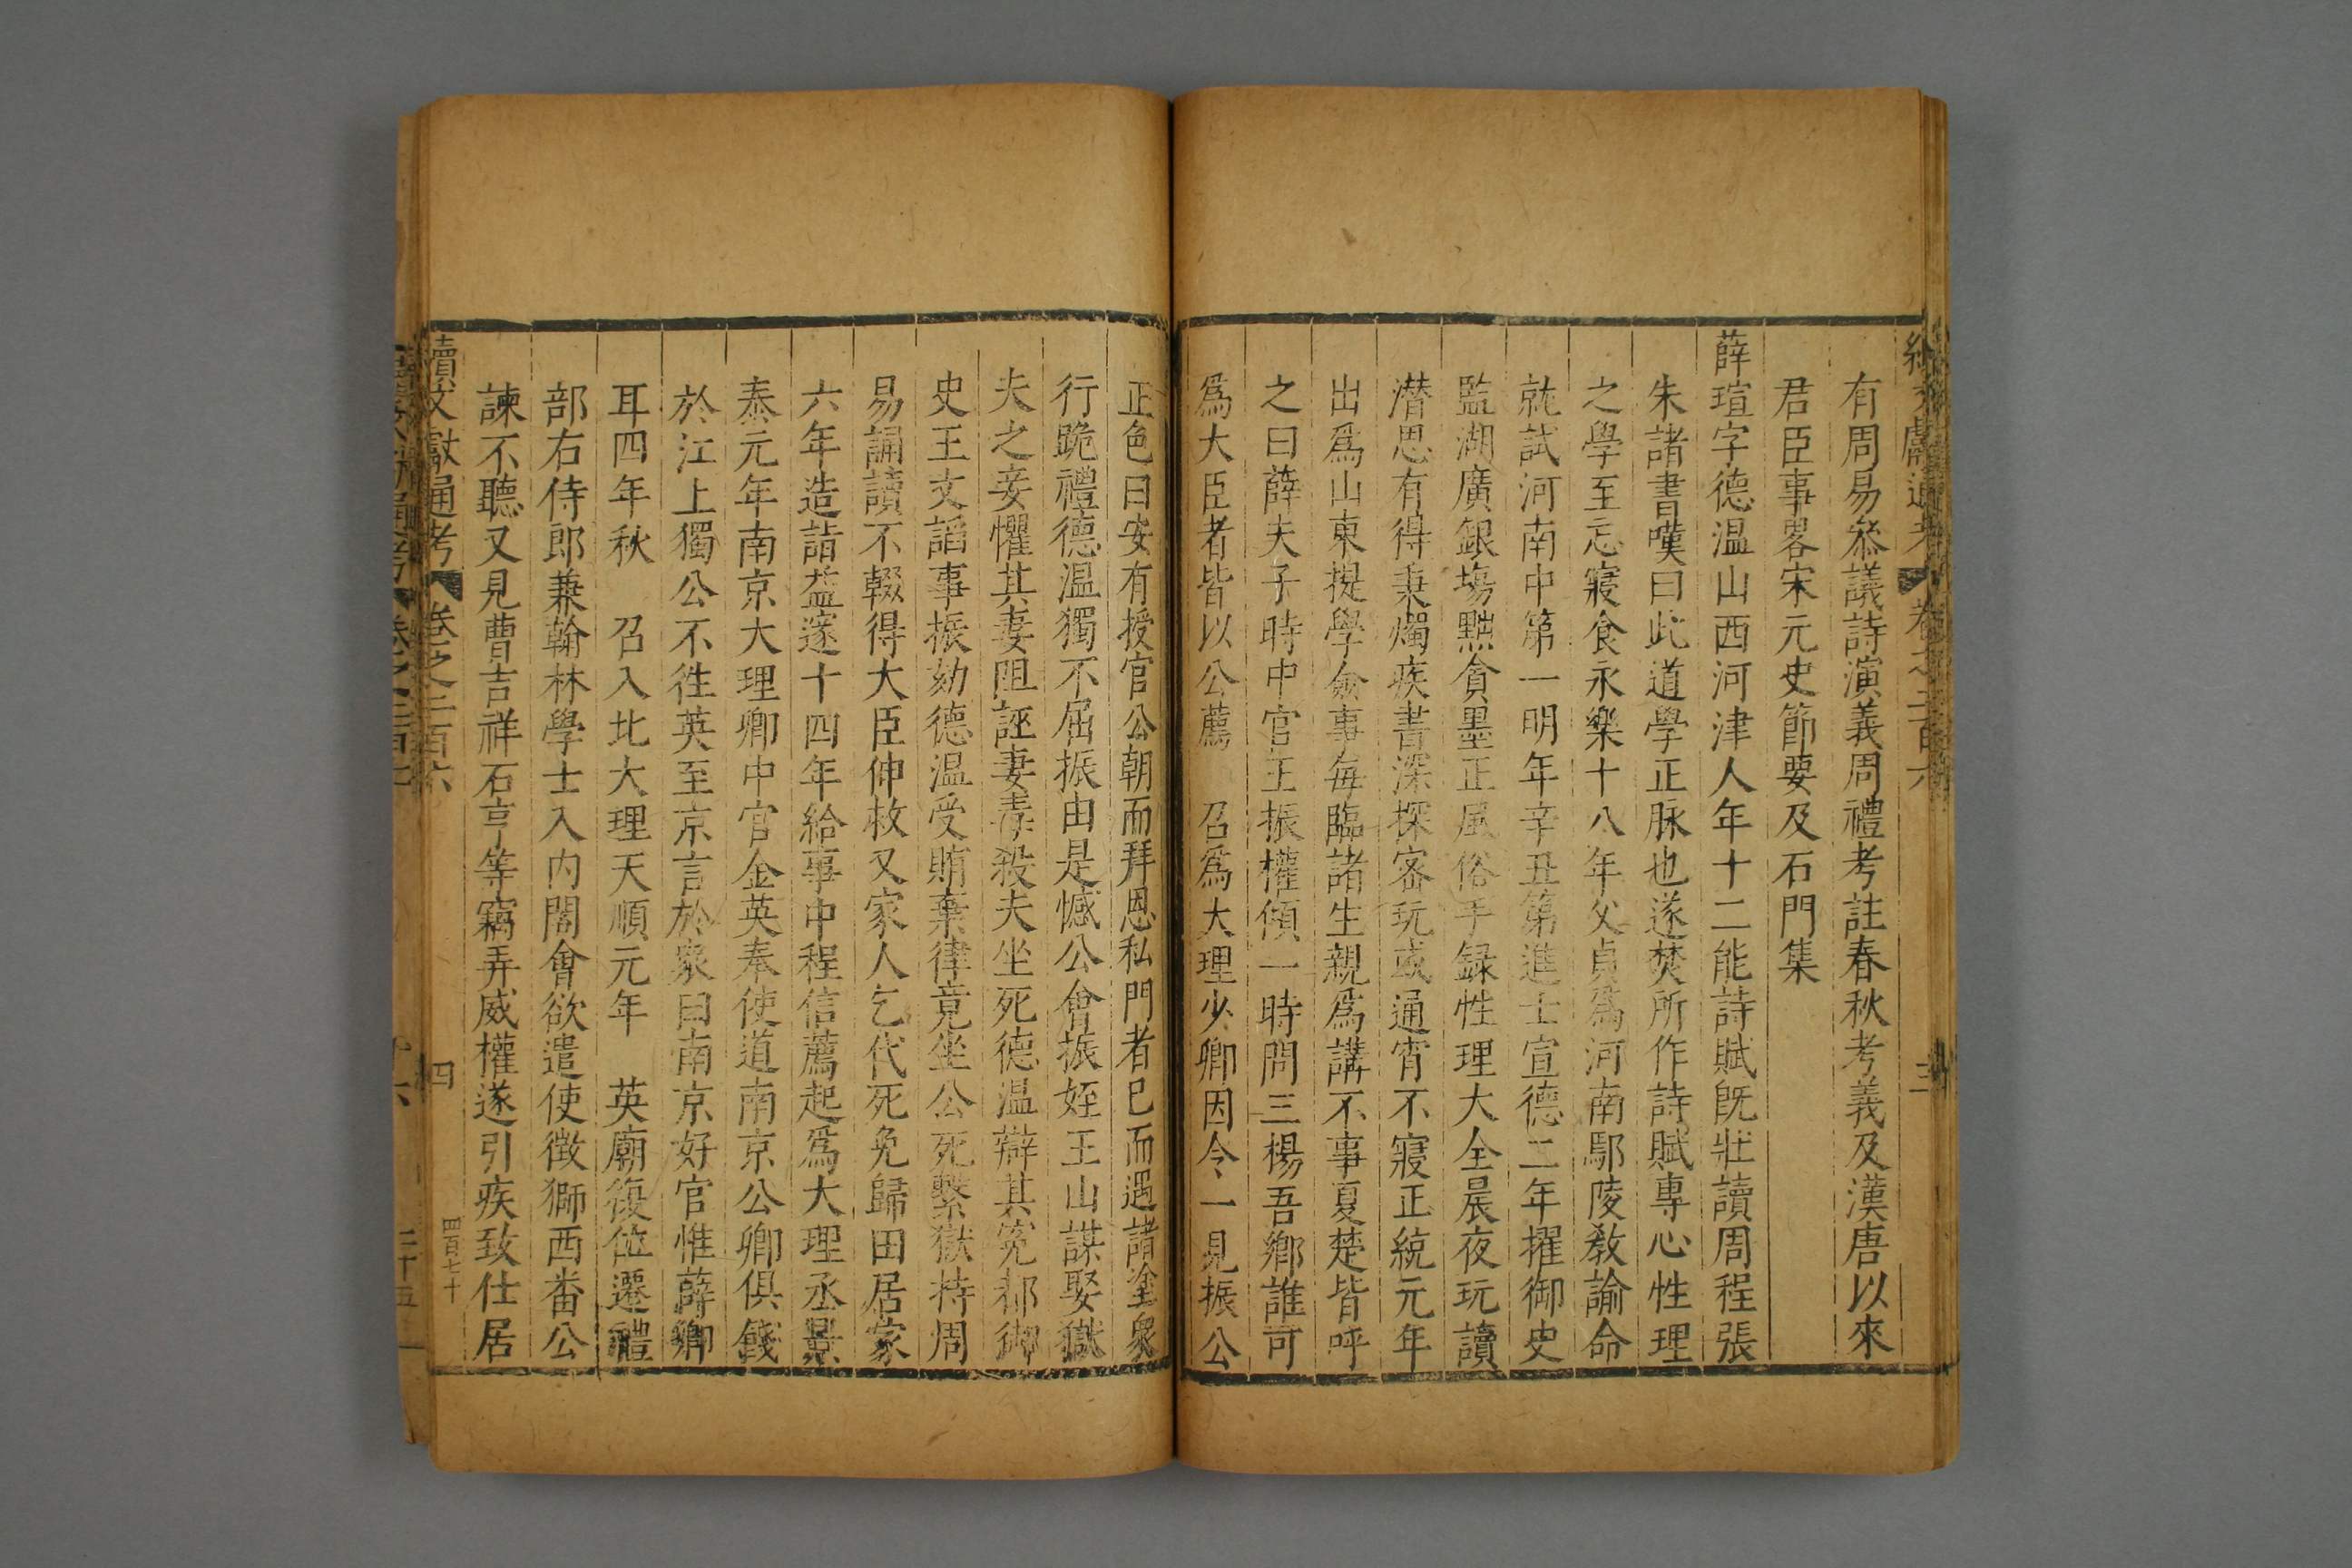 有周易叅議詩演義周禮考註春秋考義及漢唐以來
君臣事畧宋元史節要及石門集
薛瑄字德温山西河津人年十二能詩賦旣壯讀周程張
朱諸書嘆曰此道學正脉也遂焚所作詩賦專心性理
之學至忘寢食永樂十八年父貞爲河南鄢陵敎諭命
就試河南中第一明年辛丑第進士宣德二年擢御史
監湖廣銀塲黜貪墨正風俗手録性理大全晨夜玩讀
潜思有得秉燭疾書深探密玩或通宵不寢正統元年
出爲山東提學僉事每臨諸生親爲講不事夏楚皆呼
之曰薛夫子時中官王振權傾一時問三楊吾鄉誰可
爲大臣者皆以公薦 召爲大理少卿因令一見振公
正色曰安有授官公朝而拜恩私門者已而遇諸塗衆
行跪禮德温獨不屈振由是憾公會振姪王山謀娶獄
夫之妾懼其妻阻誣妻毒殺夫坐死德温辯其寃都御
史王文謟事振劾德温受賄棄律竟坐公死繫獄持周
易誦讀不輟得大臣伸救又家人乞代死免歸田居家
六年造詣益邃十四年給事中程信薦起爲大理丞景
泰元年南京大理卿中官金英奉使道南京公卿俱餞
於江上獨公不徃英至京言於衆曰南京好官惟薛卿
耳四年秋 召入北大理天順元年 英廟復位遷禮
部右侍郎兼翰林學士入内閣會欲遣使徴獅西番公
諫不聽又見曹吉祥石亨等竊弄威權遂引疾致仕居
續文獻通考 卷之二百六 四 四百七十